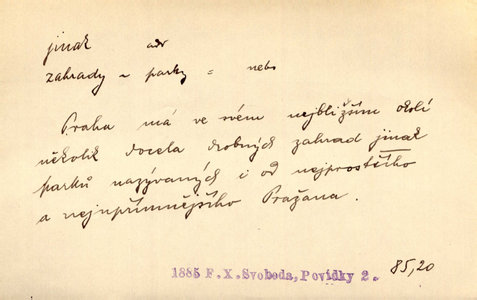 jinak adv
zahrady ~ parky = nebo
Praha má ve svém nejbližším okolí
několik docela drobných zahrad jinak
parků nazývaných i od nejprostšího
a nejupřímnějšího Pražana.
1885 F.X.Svoboda, Povídky 2. 85,20